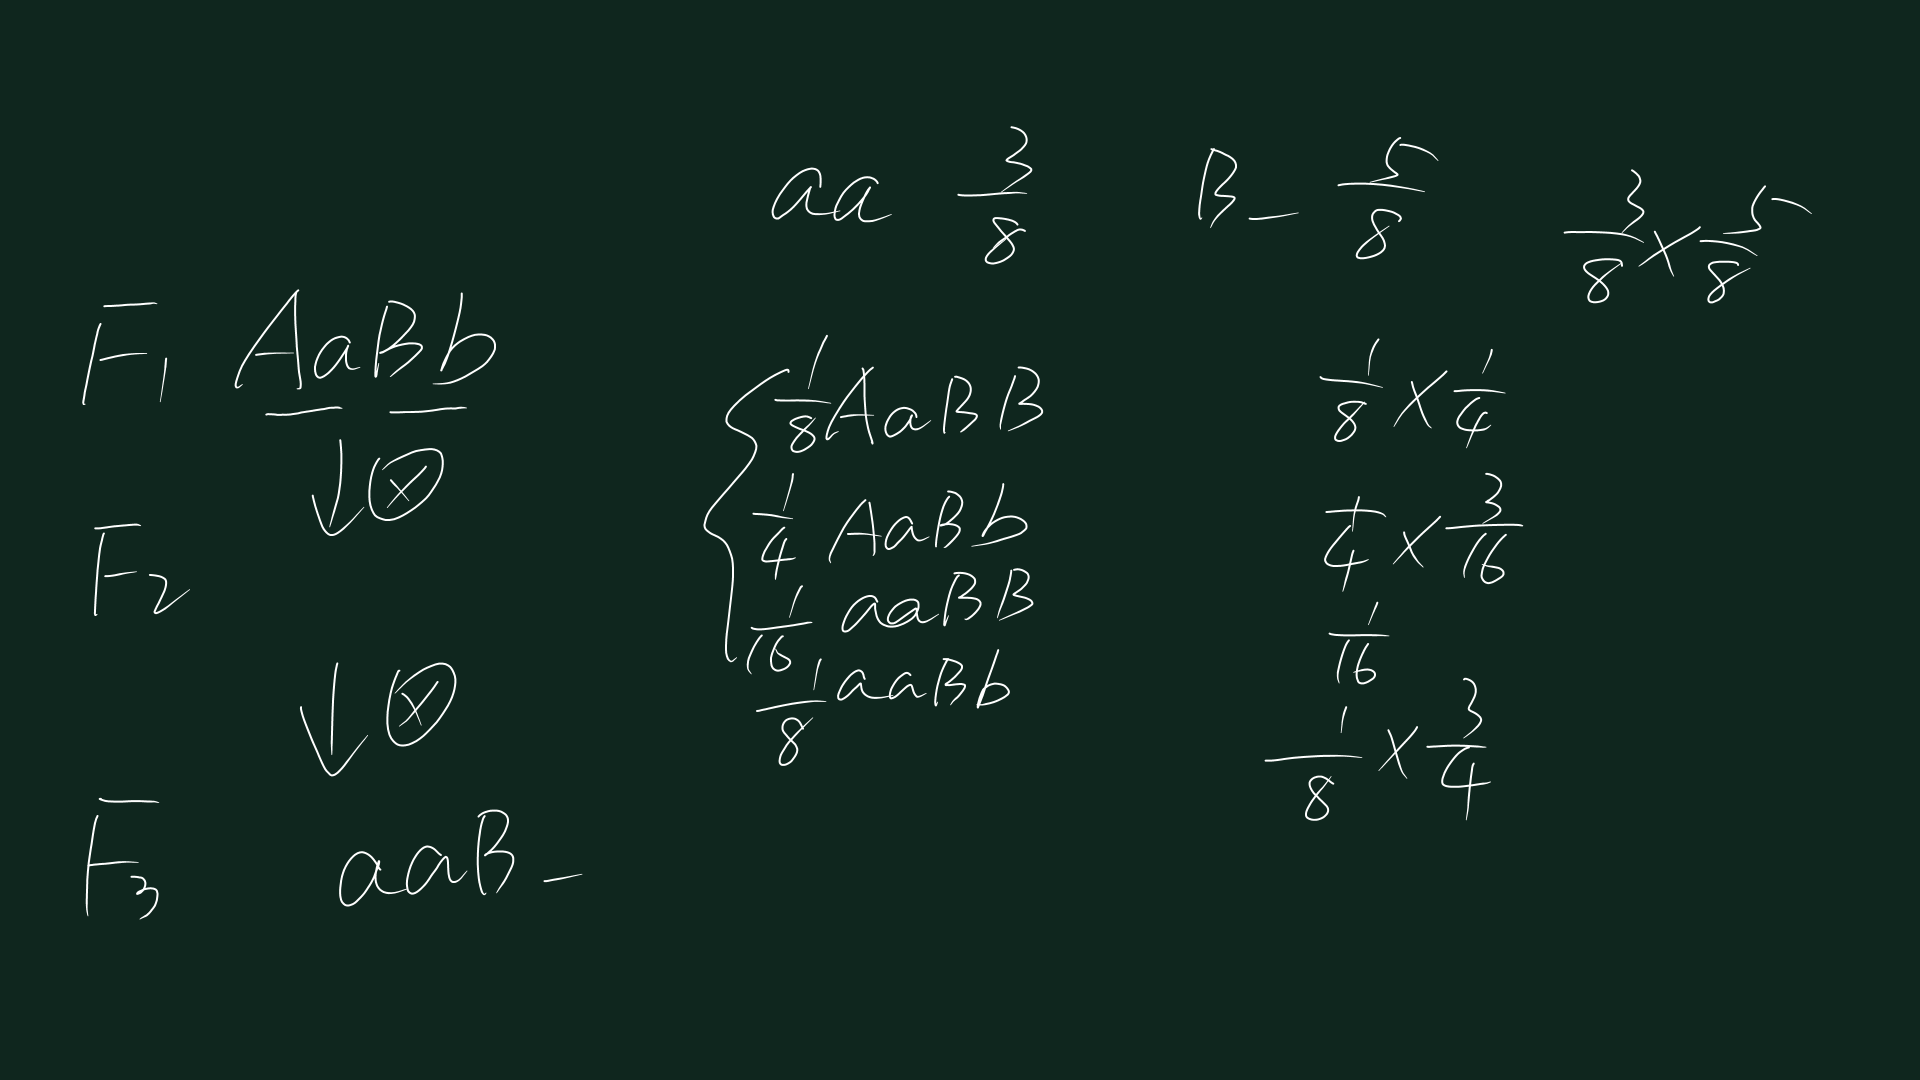 aa 3/8 B_ 5/8 3/8 × 5/8
F1 AaBb
↓⊗
F2
↓⊗
F3 aaB_
1/8 AaBB 1/8 × 1/4
1/4 AaBb 1/4 × 3/16
1/16 aaBB 1/16
1/8 aaBb 1/8 × 3/4